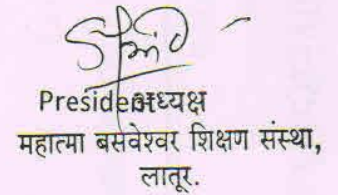 Presidentअध्यक्ष
महात्मा बसवेश्वर शिक्षण संस्था,
लातूर.